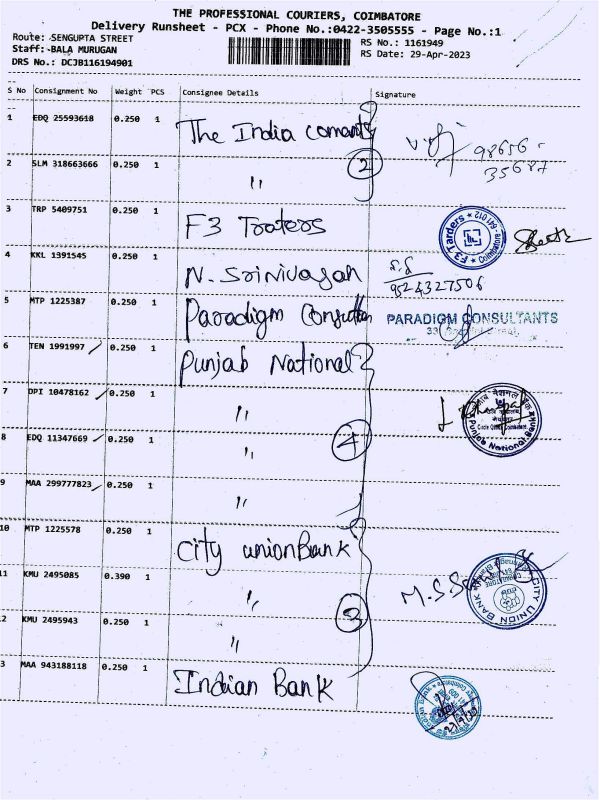 THE PROFESSIONAL COURIERS, COIMBATORE
Delivery Runsheet - PCX - Phone No.:0422-3505555 - Page No.:1
Route: SENGUPTA STREET
Staff: BALA MURUGAN
DRS No.: DCJB116194901
RS No.: 1161949
RS Date: 29-Apr-2023
S No Consignment No Weight PCS Consignee Details Signature
1 EDQ 25593618 0.250 1 The India 98656-
35687
2 SLM 318663666 0.250 1 " 2
3 TRP 5409751 0.250 1 F3 Traters F3 Tarders * Coimbatore * 641 012
4 KKL 1391545 0.250 1 N. Srinivasan 9524327506
5 MTP 1225387 0.250 1 Paradigm PARADIGM CONSULTANTS
6 TEN 1991997 0.250 1 Punjab National
7 DPI 10478162 0.250 1 " Punjab National Bank
8 EDQ 11347669 0.250 1 " 4
9 MAA 299777823 0.250 1 "
10 MTP 1225578 0.250 1 City union Bank
11 KMU 2495085 0.390 1 " M.S CITY UNION BANK
2 KMU 2495943 0.250 1 " 3
3 MAA 943188118 0.250 1 Indian Bank